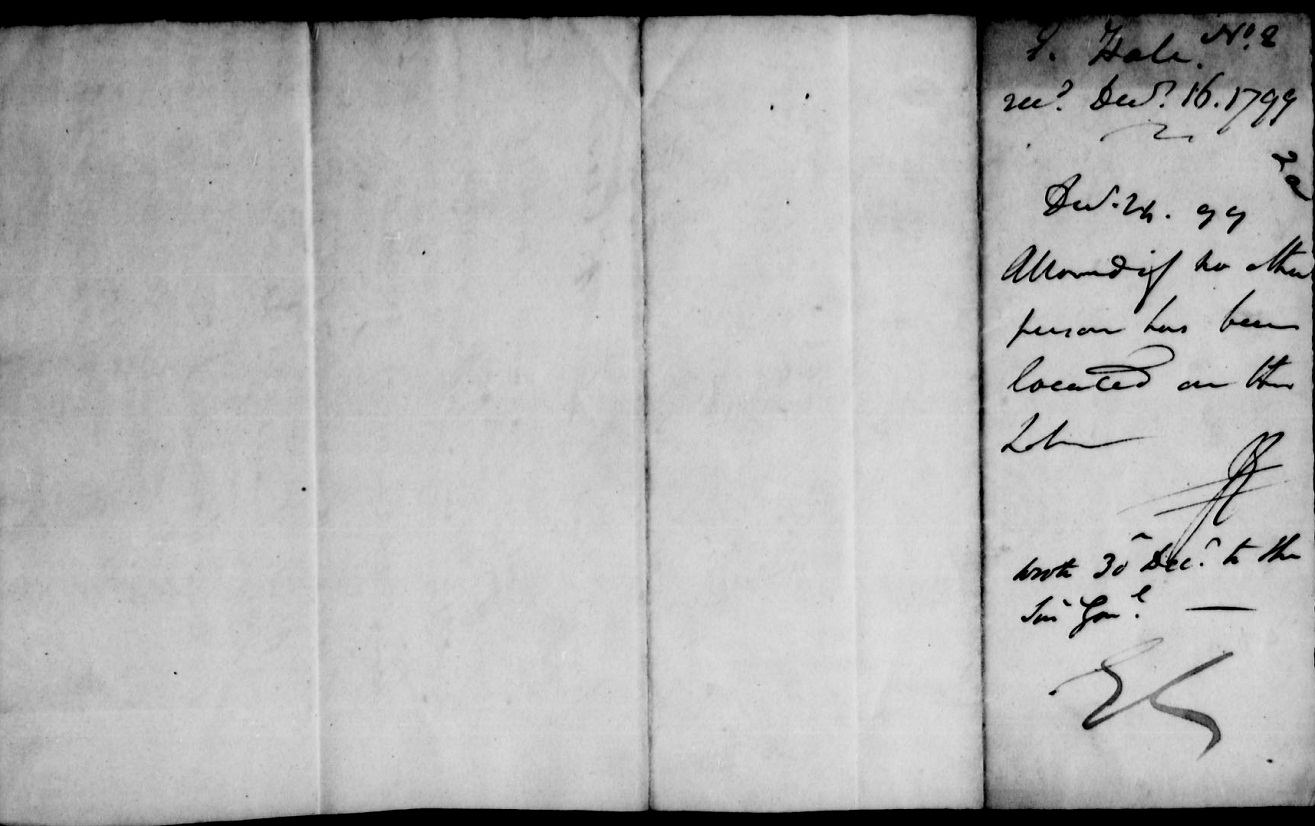 Hale. No. 2
recd. Decr. 16. 1799
Decr. 24. 99
Allowed if no other
person has been
located on the
Lots
wrote 30 Decr. to the
Surr Genl. —